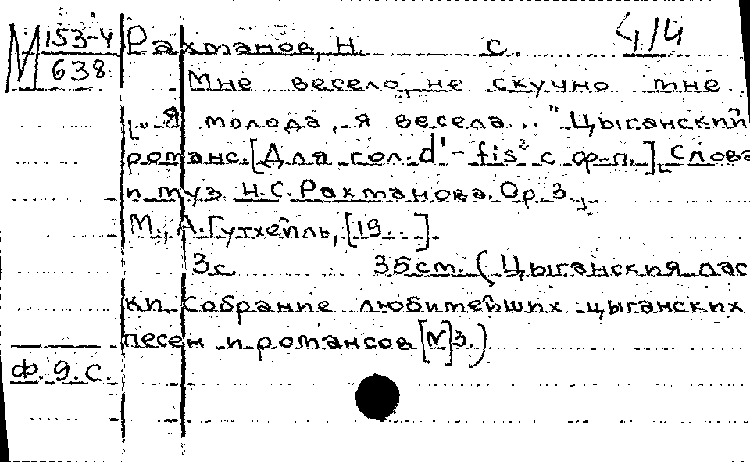 М 153-4 Рахманов, Н. С. 4/4
638
Мне весело, не скучно мне
[„Я молода, я весела.." Цыганский
романс. [Для гол. d¹-fis² с ф-п.]. Слова
и муз. Н.С. Рахманова. Ор. 3.
М., А. Гутхейль, [19..].
3с 35см. (Цыганския лас
ки. Собрание любимейших цыганских
песен и романсов [N] 3.)
ф. 9. с.